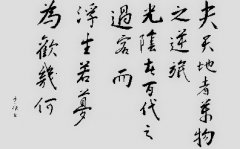 夫天地者萬物
之逆旅
光陰者百代之
過客而
浮生若夢
為歡幾何